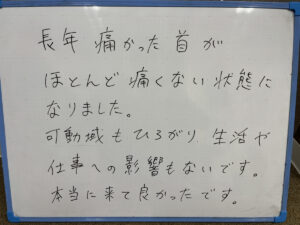 長年 痛かった 首が
ほとんど 痛くない 状態に
なりました。
可動域も ひろがり 生活や
仕事への影響もないです。
本当に来て良かったです。